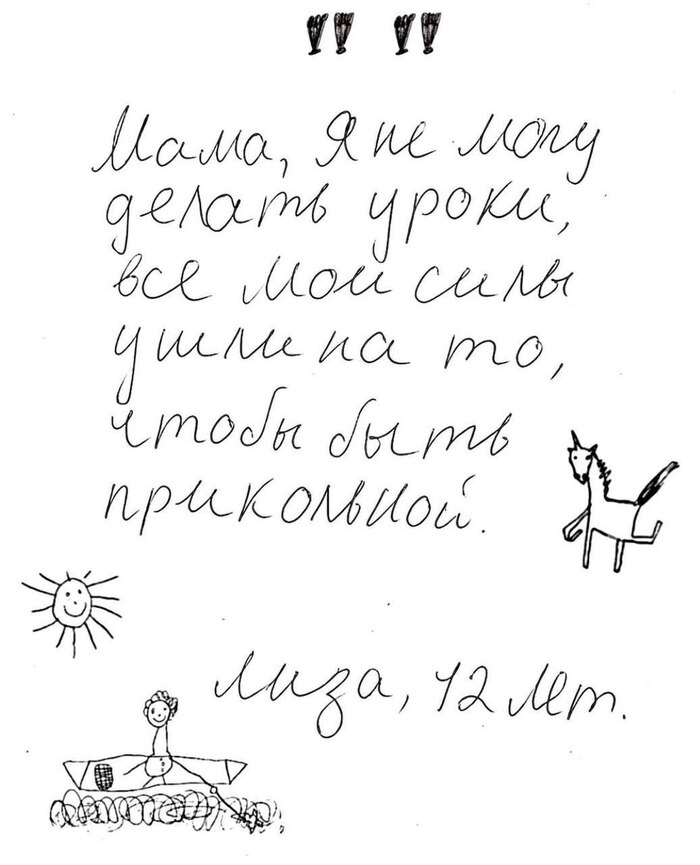 Мама, Я не могу
делать уроки,
все мои силы
ушли на то,
чтобы быть
прикольной.
Лиза, 12 лет.